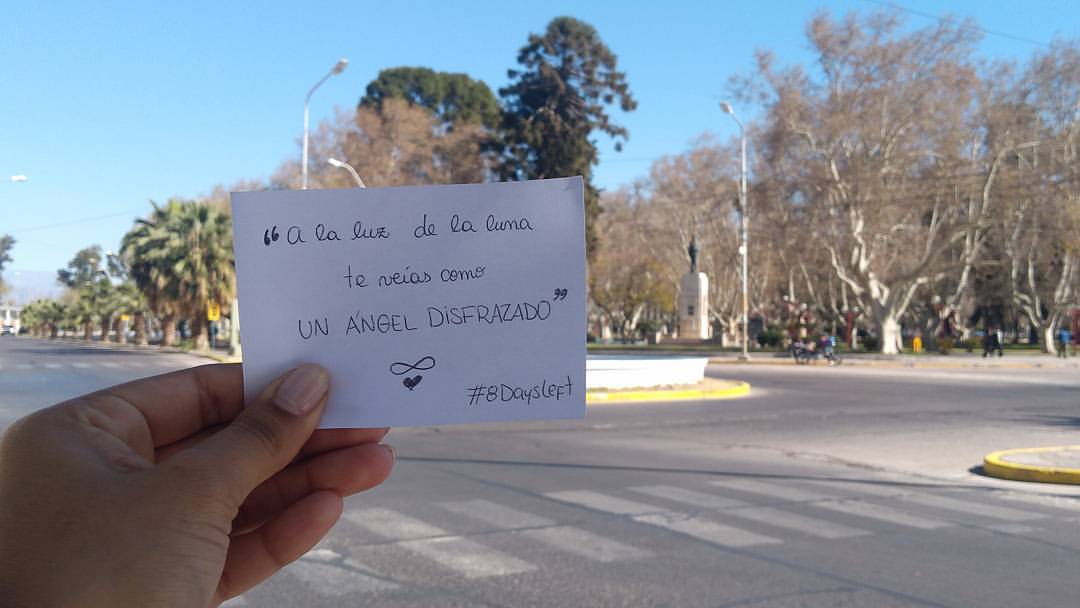 “A la luz de la luna
te veías como
UN ÁNGEL DISFRAZADO”
#8DaysLeft